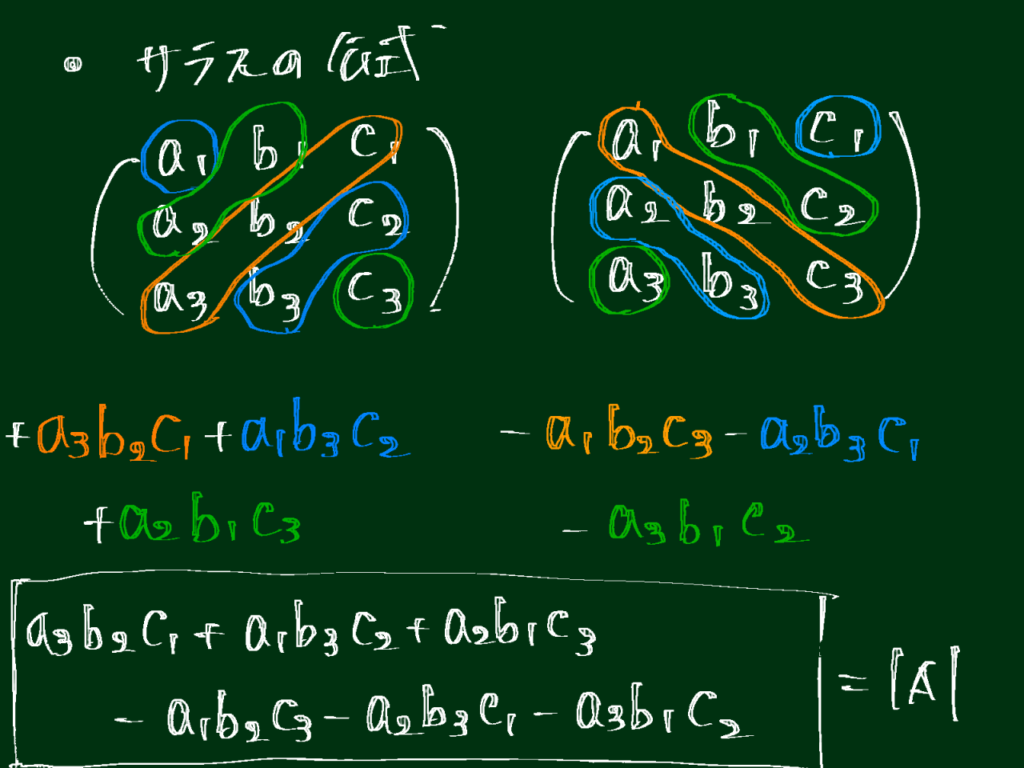 • サラスの公式
a₁ b₁ c₁ a₁ b₁ c₁
a₂ b₂ c₂ a₂ b₂ c₂
a₃ b₃ c₃ a₃ b₃ c₃
+a₃b₂c₁+a₁b₃c₂ -a₁b₂c₃-a₂b₃c₁
+a₂b₁c₃ -a₃b₁c₂
a₃b₂c₁+a₁b₃c₂+a₂b₁c₃
-a₁b₂c₃-a₂b₃c₁-a₃b₁c₂ =|A|